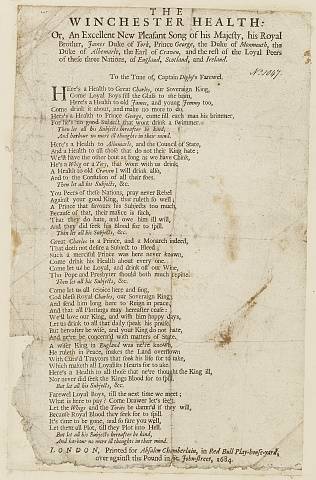 THE
WINCHESTER HEALTH:
Or, An Excellent New Pleasant Song of his Majesty, his Royal
Brother, James Duke of York, Prince George, the Duke of Monmouth, the
Duke of Albemarle, the Earl of Craven, and the rest of the Loyal Peers
of these three Nations, of England, Scotland, and Ireland.
To the Tune of, Captain Digby's Farewel.
HEre's a Health to Great Charles, our Soveraign King,
Come Loyal Boys fill the Glass to the brim,
Here's a Health to old James, and young Jemmy too,
Come drink it about, and make no more to do.
Here's a Health to Prince George, come fill each man his brimmer,
For he's no good Subject that wont drink a swimmer.
Then let all his Subjects hereafter be kind,
And harbour no more ill thoughts in their mind.
Here's a Health to Albemarle, and the Council of State,
And a Health to all those that do not their King hate;
We'll have the other bout as long as we have Chink,
He's a Whig or a Tory, that wont with us drink,
A Health to old Craven I will drink also,
And to the Confusion of all their foes.
Then let all his Subjects, &c.
You Peers of these Nations, pray never Rebel
Against your good King, that ruleth so well;
A Prince that favours his Subjects too much,
Because of that, their malice is such,
That they do hate, and owe him ill will,
And they did seek his Blood for to spill.
Then let all his Subjects, &c.
Great Charles is a Prince, and a Monarch indeed,
That doth not desire a Subject to Bleed;
Such a merciful Prince was here never known,
Come drink his Health about every one.
Come let us be Loyal, and drink off our Wine,
Tho Pope and Presbyter should both
Then let all his Subjects, &c.
Come let us all rejoice here and sing,
God bless Royal Charles, our Soveraign King,
And send him long here to Reign in peace,
And that all Plottings may hereafter cease:
We'll love our King, and wish him happy days,
Let us drink to all that daily speak his praise,
But hereafter be wise, and your King do not hate,
And ne're be concern'd with matters of State.
A wiser King in England was ne're known,
He ruleth in Peace, makes the Land overflown
With Traytors that seek his life for to take,
Which maketh all Loyalists Hearts for to ake.
Here's a Health to all those that ne're thought the King ill,
Nor never did seek the Kings Blood for to spill.
But let all his Subjects, &c.
Farewel Loyal Boys, till the next time we meet;
What is here to pay? Come Drawer let's see't,
Let the Whigs and the Tories be damn'd if they will,
Because Royal Blood they seek for to spill.
It's time to be gone, and so fare you well,
Let them all Plot, till they Plot into Hell.
But let all his Subjects hereafter be kind,
And harbour no more ill thoughts in their mind.
LONDON, Printed for Absalom Chamberlain, in Red Bull Play-house-yard,
over against the Pound in St. John-street, 1684.